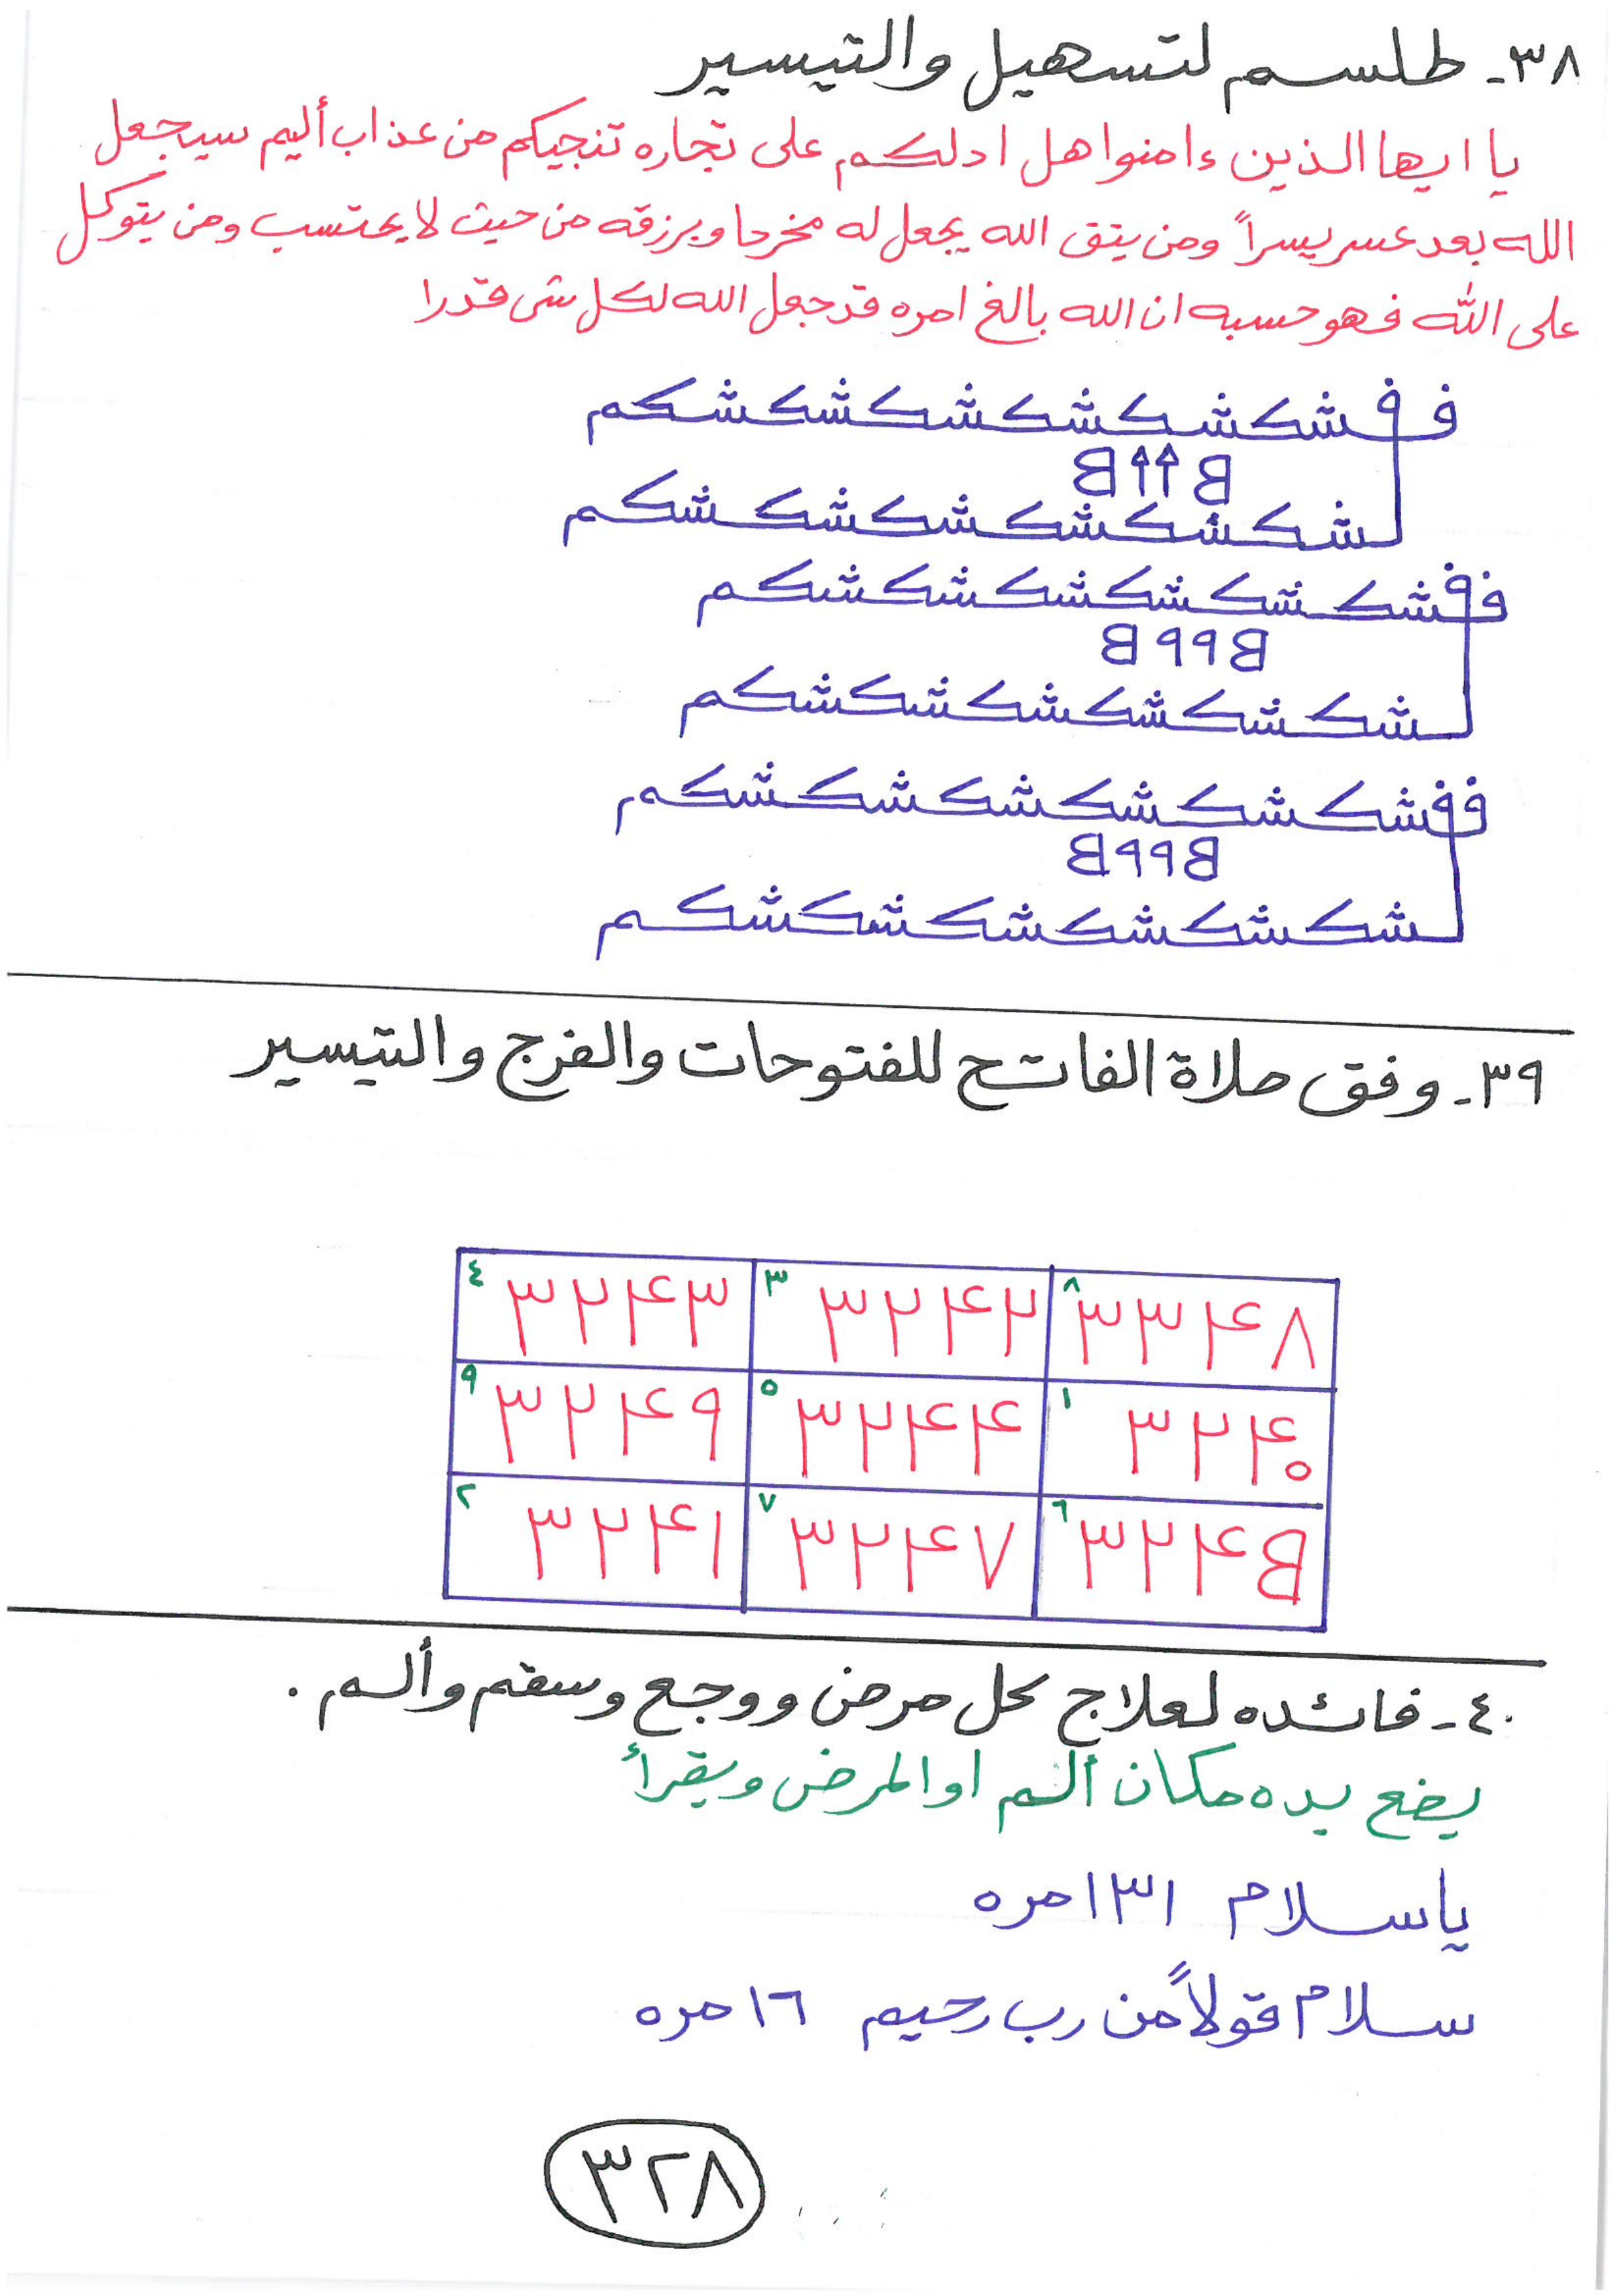 ٣٨- طلسم لتسهيل والتيسير
يا ايها الذين ءامنوا هل ادلكم على تجاره تنجيكم من عذاب أليم سيجعل
الله بعد عسر يسراً ومن يتق الله يجعل له مخرجا ويرزقه من حيث لا يحتسب ومن يتوكل
على الله فهو حسبه ان الله بالغ امره قد جعل الله لكل شى قدرا
ففشكشكشكشكشكشكم
B ↑↑ B
شكشكشكشكشكشكم
ففشكشكشكشكشكشكم
B ٩٩ B
شكشكشكشكشكشكم
ففشكشكشكشكشكشكم
B ٩٩ B
شكشكشكشكشكشكم
٣٩- وفق صلاة الفاتح للفتوحات والفرج والتيسير
٨ ٣٣٤٨ ٣ ٣٢٤٢ ٤ ٣٢٤٣
١ ٣٢٤٠ ٥ ٣٢٤٤ ٩ ٣٢٤٩
٦ ٣٢٤B ٧ ٣٢٤٧ ٢ ٣٢٤١
٤٠- فائده لعلاج كل مرض ووجع وسقم وألم .
يضع يده مكان ألم او المرض ويقرأ
يا سلام ١٣١ مره
سلام قولاً من رب رحيم ١٦ مره
٣٢٨